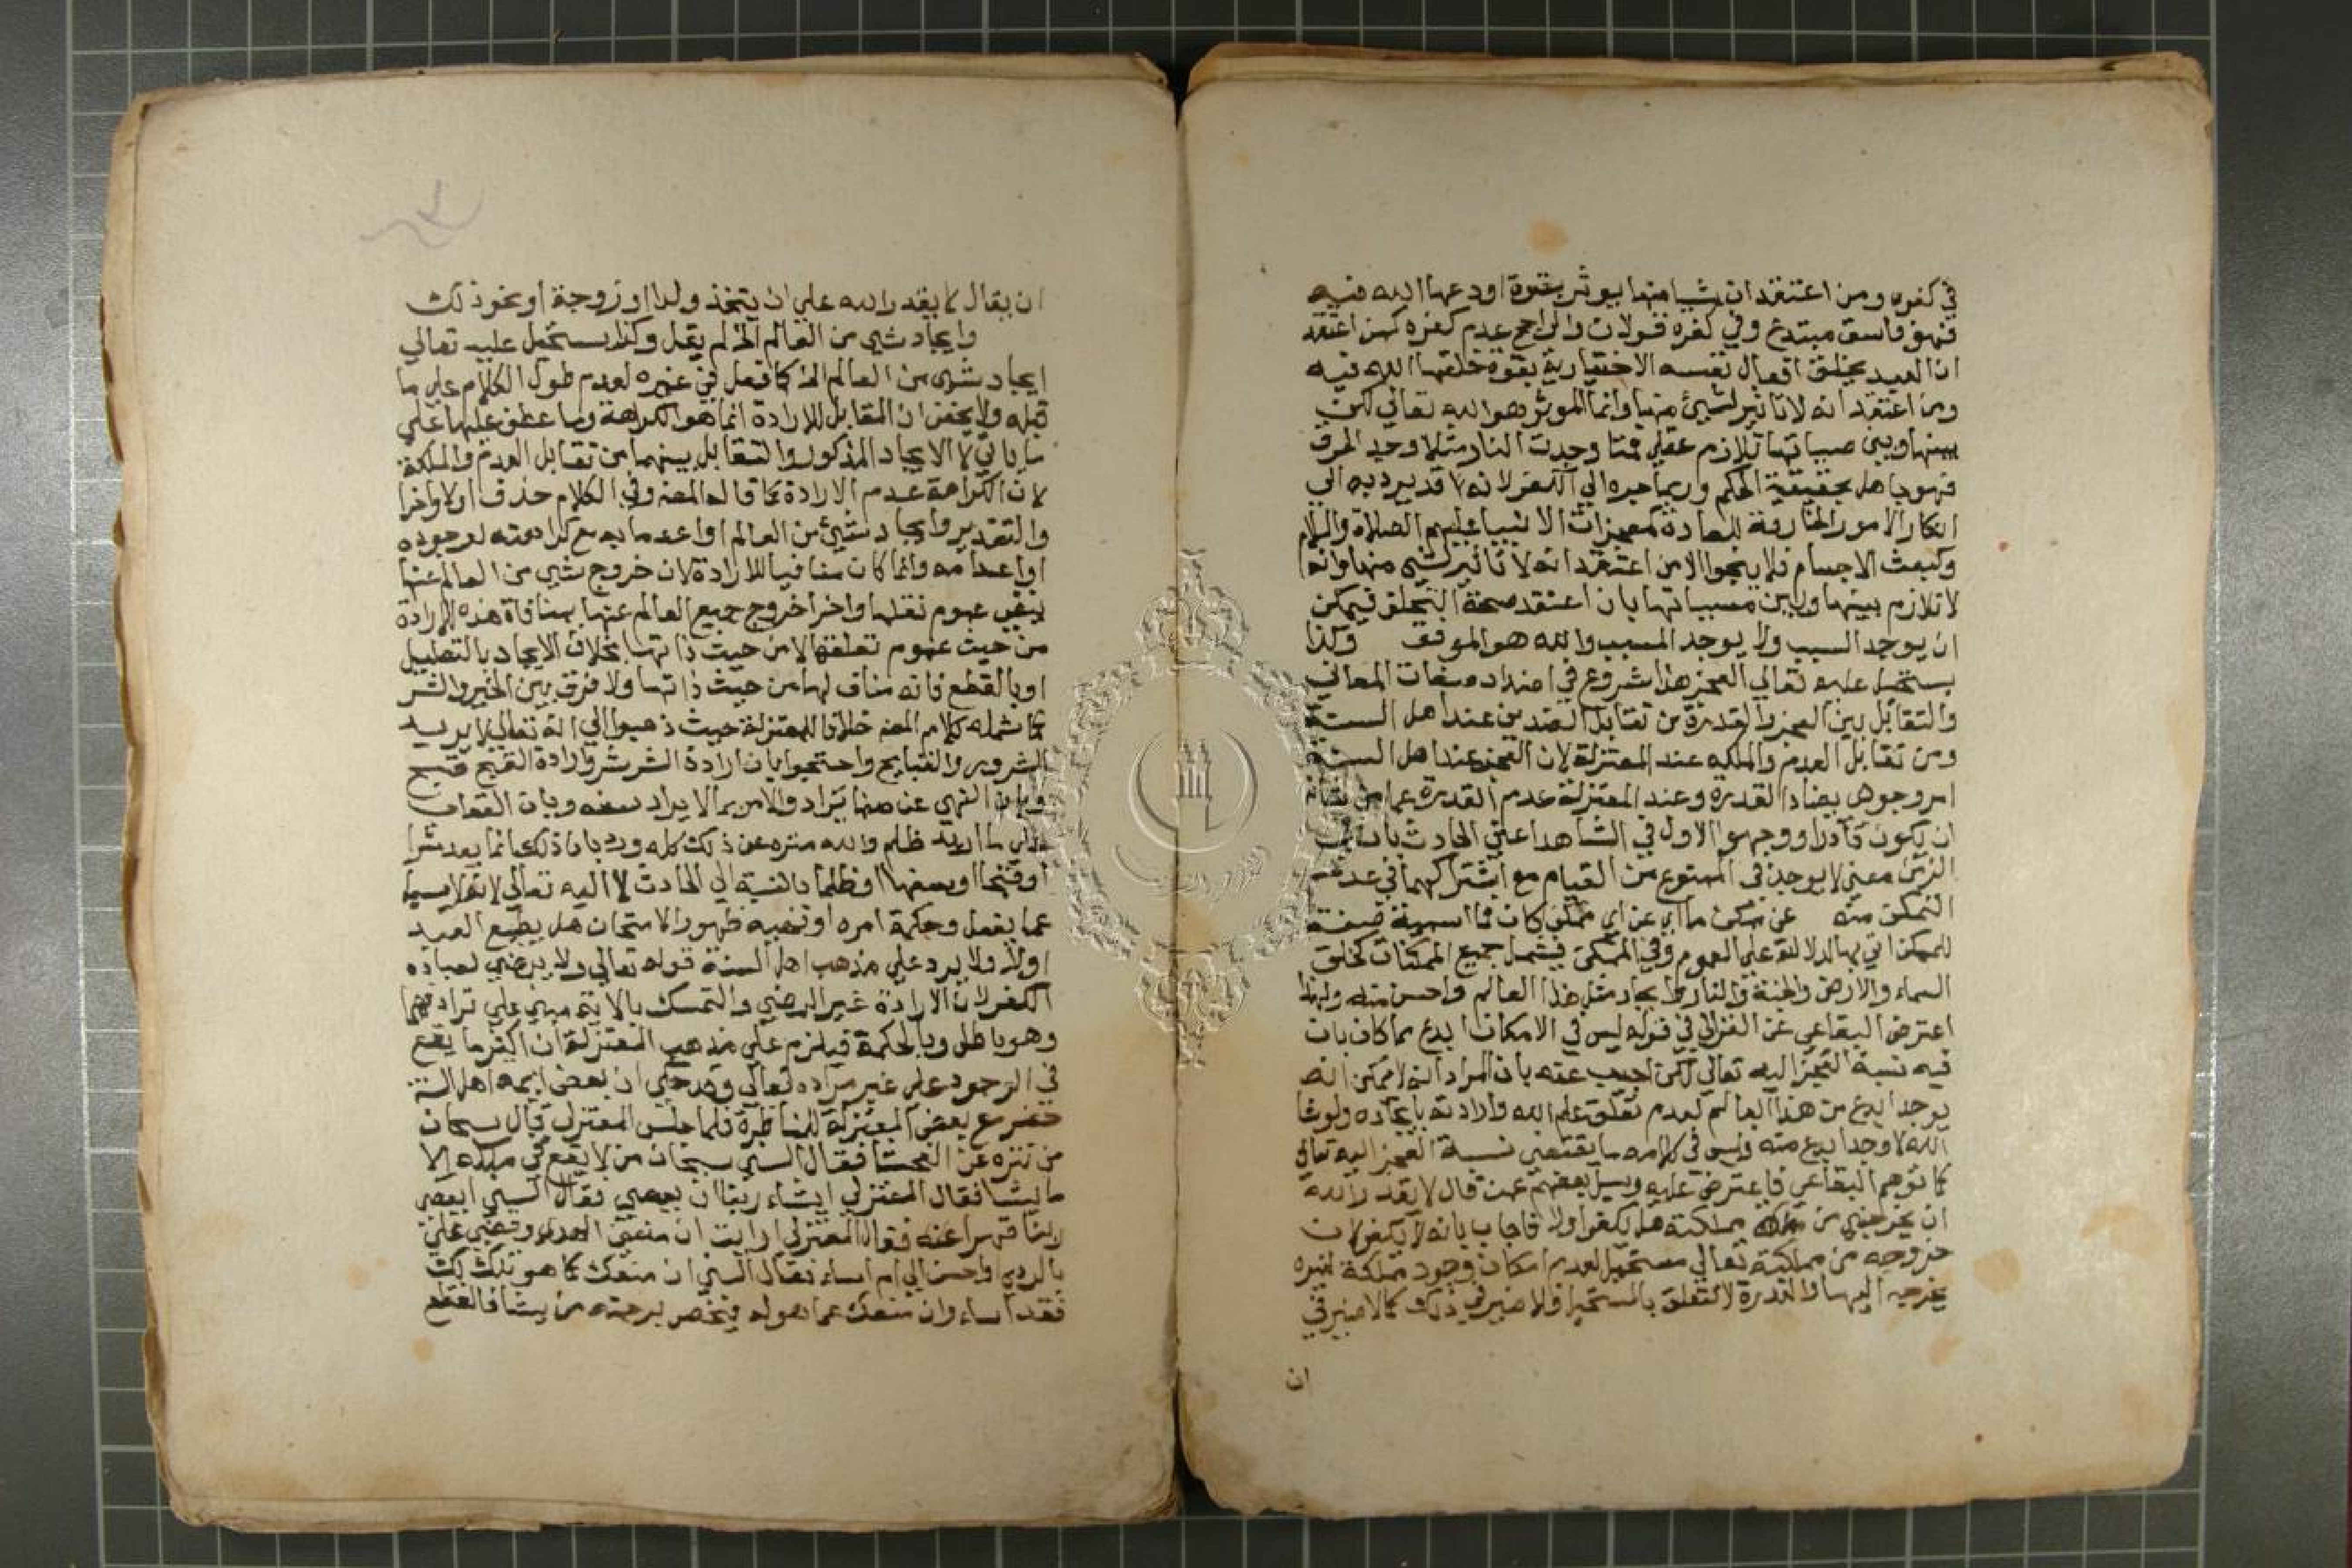 في كفره ومن اعتقد ان شيا منها يوثر بقوة اودعها الله فيه
فهو فاسق مبتدع وفي كفره قولان والراجح عدم كفره كمن اعتقد
ان العبد يخلق افعال نفسه الاختيارية بقوة خلقها الله فيه
ومن اعتقد انه لا تاثير لشيئ منها وانما الموثر هو الله تعالي لكن
بينها وبين مسبباتها تلازم عقلي فمتا وجدت النار مثلا وجد الحرق
فهو جاهل بحقيقة الحكم وربما جره الي الكفر لانه قد يرد به الي
انكار الامور الخارقة للعادة كمعجزات الانبيا عليهم الصلاة والسلام
وكبعث الاجسام فلا ينجوا الا من اعتقد انه لا تاثير لشي منها وانه
لا تلازم بينها وبين مسبباتها بان اعتقد صحة التخلق فيمكن
ان يوجد السبب ولا يوجد المسبب والله هو الموفق وكذا
يستحيل عليه تعالي العجز هذا شروع في اضداد صفات المعاني
والتقابل بين العجز والقدرة من تقابل الضدين عند اهل السنة
ومن تقابل العدم والملكه عند المعتزلة لان العجز عند اهل السنة
امر وجودي يضاد القدره وعند المعتزلة عدم القدرة عما من شانه
ان يكون قادرا ووجه الاول في الشاهد اعني الحادث بان في
الزمن معني لا يوجد في الممنوع من القيام مع اشتراكهما في عدم
التمكن منه عن ممكن ما اي عن اي ممكن كان فما اسمية صفة
للممكن اتي بها للدلالة علي العموم في الممكن فيشمل جميع الممكنات كخلق
السماء والارض والجنة والنار وايجاد مثل هذا العالم واحسن منه ولهذا
اعترض البقاعي عن الغزالي في قوله ليس في الامكان ابدع مما كان بان
فيه نسبة العجز اليه تعالي لكن اجيب عنه بان المراد انه لا يمكن ان
يوجد ابدع من هذا العالم لعدم تعلق علم الله وارادته بايجاده ولو شا
الله لاوجد ابدع منه وليس في كلامه ما يقتضي نسبة العجز اليه تعالي
كما توهم البقاعي فاعترض عليه وسيل بعضهم عمن قال لا يقدر الله
ان يخرجني من مملكته هل يكفر اولا فاجاب بانه لا يكفر لان
خروجه من مملكته تعالي مستحيل لعدم امكان وجود مملكة لغيره
يخرجه اليها والقدرة لا تتعلق بالمستحيل فلا ضير في ذلك كما لا ضير في
ان
ان يقال لا يقدر الله علي ان يتخذ ولدا او زوجة او نحو ذلك
وايجاد شي من العالم الخ لم يقل وكذا يستحيل عليه تعالي
ايجاد شي من العالم الخ كما فعل في غيره لعدم طول الكلام علي ما
قبله ولا يخفي ان المقابل للارادة انما هو الكراهة وما عطف عليها علي
ما ياتي لا الايجاد المذكور والتقابل بينهما من تقابل العدم والملكة
لان الكراهة عدم الارادة كما قاله المصنف وفي الكلام حذف اولا واخرا
والتقدير وايجاد شيئ من العالم او اعدامه مع كراهته لوجوده
او اعدامه وانما كان منافيا للارادة لان خروج شي من العالم عنها
ينفي عموم تعلقها واخرا خروج جميع العالم عنها بمنافاة هذه للارادة
من حيث عموم تعلقها لا من حيث ذاتها بخلاف الايجاد بالتعليل
او بالطبع فانه مناف لها من حيث ذاتها ولا فرق بين الخير والشر
كما شمله كلام المصنف خلافا للمعتزلة حيث ذهبوا الي انه تعالي لا يريد
الشرور والقبايح واحتجوا بان ارادة الشر شر وارادة القبيح قبيح
وبان النهي عن ما يراد والامر بما لا يراد سفه وبان العقاب
علي ما اريد ظلم والله منزه عن ذلك كله ورد بان ذلك انما يعد شرا
او قبحا او سفها او ظلما بالنسبة الي الحادث لا اليه تعالي لانه لا يسيل
عما يفعل وحكمة امره او نهيه ظهور الامتحان هل يطيع العبد
اولا ولا يرد علي مذهب اهل السنة قوله تعالي ولا يرضي لعباده
الكفر لان الارادة غير الرضي والتمسك بالاية مبني علي ترادفهما
وهو باطل وبالحكمة فيلزم علي مذهب المعتزلة ان اكثر ما يقع
في الوجود علي غير مراده تعالي وقد حكي ان بعض ايمة اهل السنة
حضر مع بعض المعتزلة للمناظرة فلما جلس المعتزلي قال سبحان
من تنزه عن الفحشا فقال السني سبحان من لا يقع في ملكه الا
ما يشا فقال المعتزلي ايشاء ربنا ان يعصي فقال السني ايعصي
ربنا قهرا عنه فقال المعتزلي ارايت ان منعني الهدي وقضي علي
بالردي احسن الي ام اساء فقال السني ان منعك ما هو لك
فقد اساء وان منعك عما هو له فيختص برحمته من يشا فانقطع